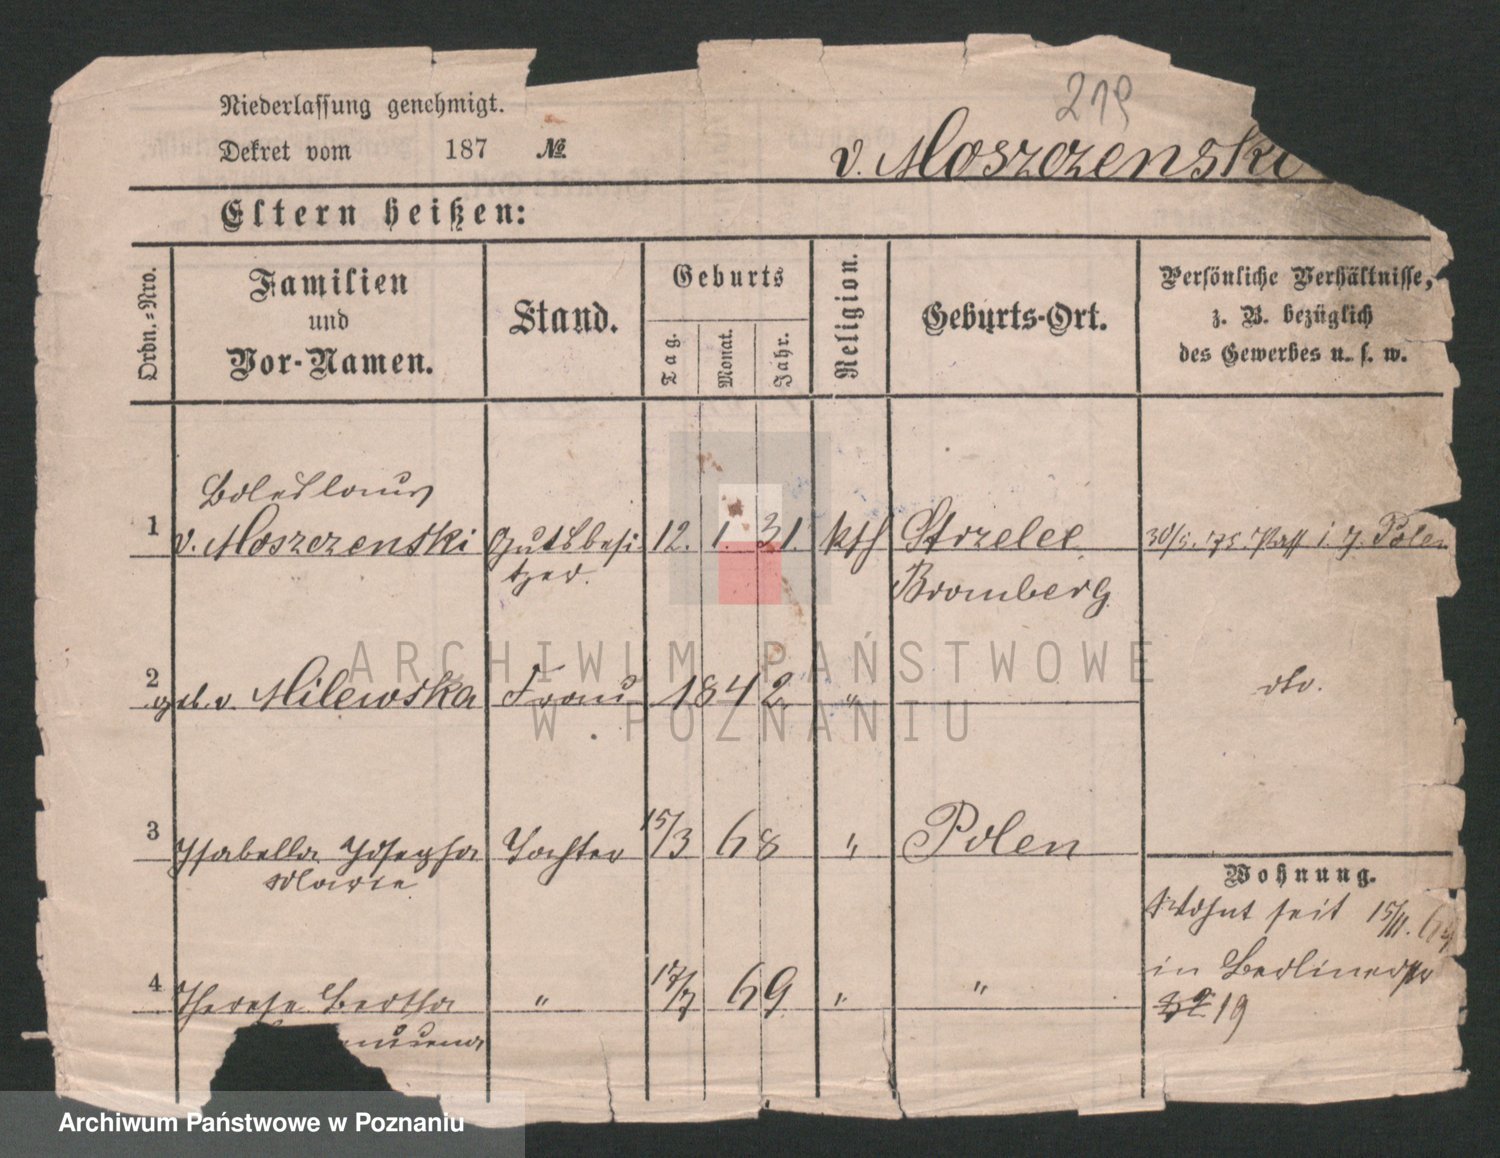 219
Niederlassung genehmigt.
Dekret vom 187 №
v. Moszczenski
Eltern heißen:
Ordn.-Nro.
Familien
und
Vor-Namen.
Stand.
Geburts
Tag.
Monat.
Jahr.
Religion.
Geburts-Ort.
Persönliche Verhältnisse,
z. B. bezüglich
des Gewerbes u. s. w.
Boleslaus
1 v. Moszczenski Gutsbesi- 12. 1. 31. kth Strzelec 30/5. 75. Paß i. J. Polen
tzer. Bromberg
2 geb. v. Milewska Frau 1842 " dto.
3 Isabella Josepha Tochter 15/3 68 " Polen
Marie
Wohnung.
Wohnt seit 15/11. 69
in Berlinerstr
19
4 Therese Bertha " 17/7 69 " "
ARCHIWUM PAŃSTWOWE
W POZNANIU
Archiwum Państwowe w Poznaniu